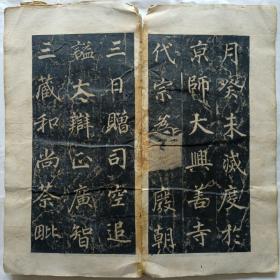 月癸未滅度於
京師大興善寺
代宗為廢朝
三日贈司空追
謚大辯正廣智
三藏和尚荼毗